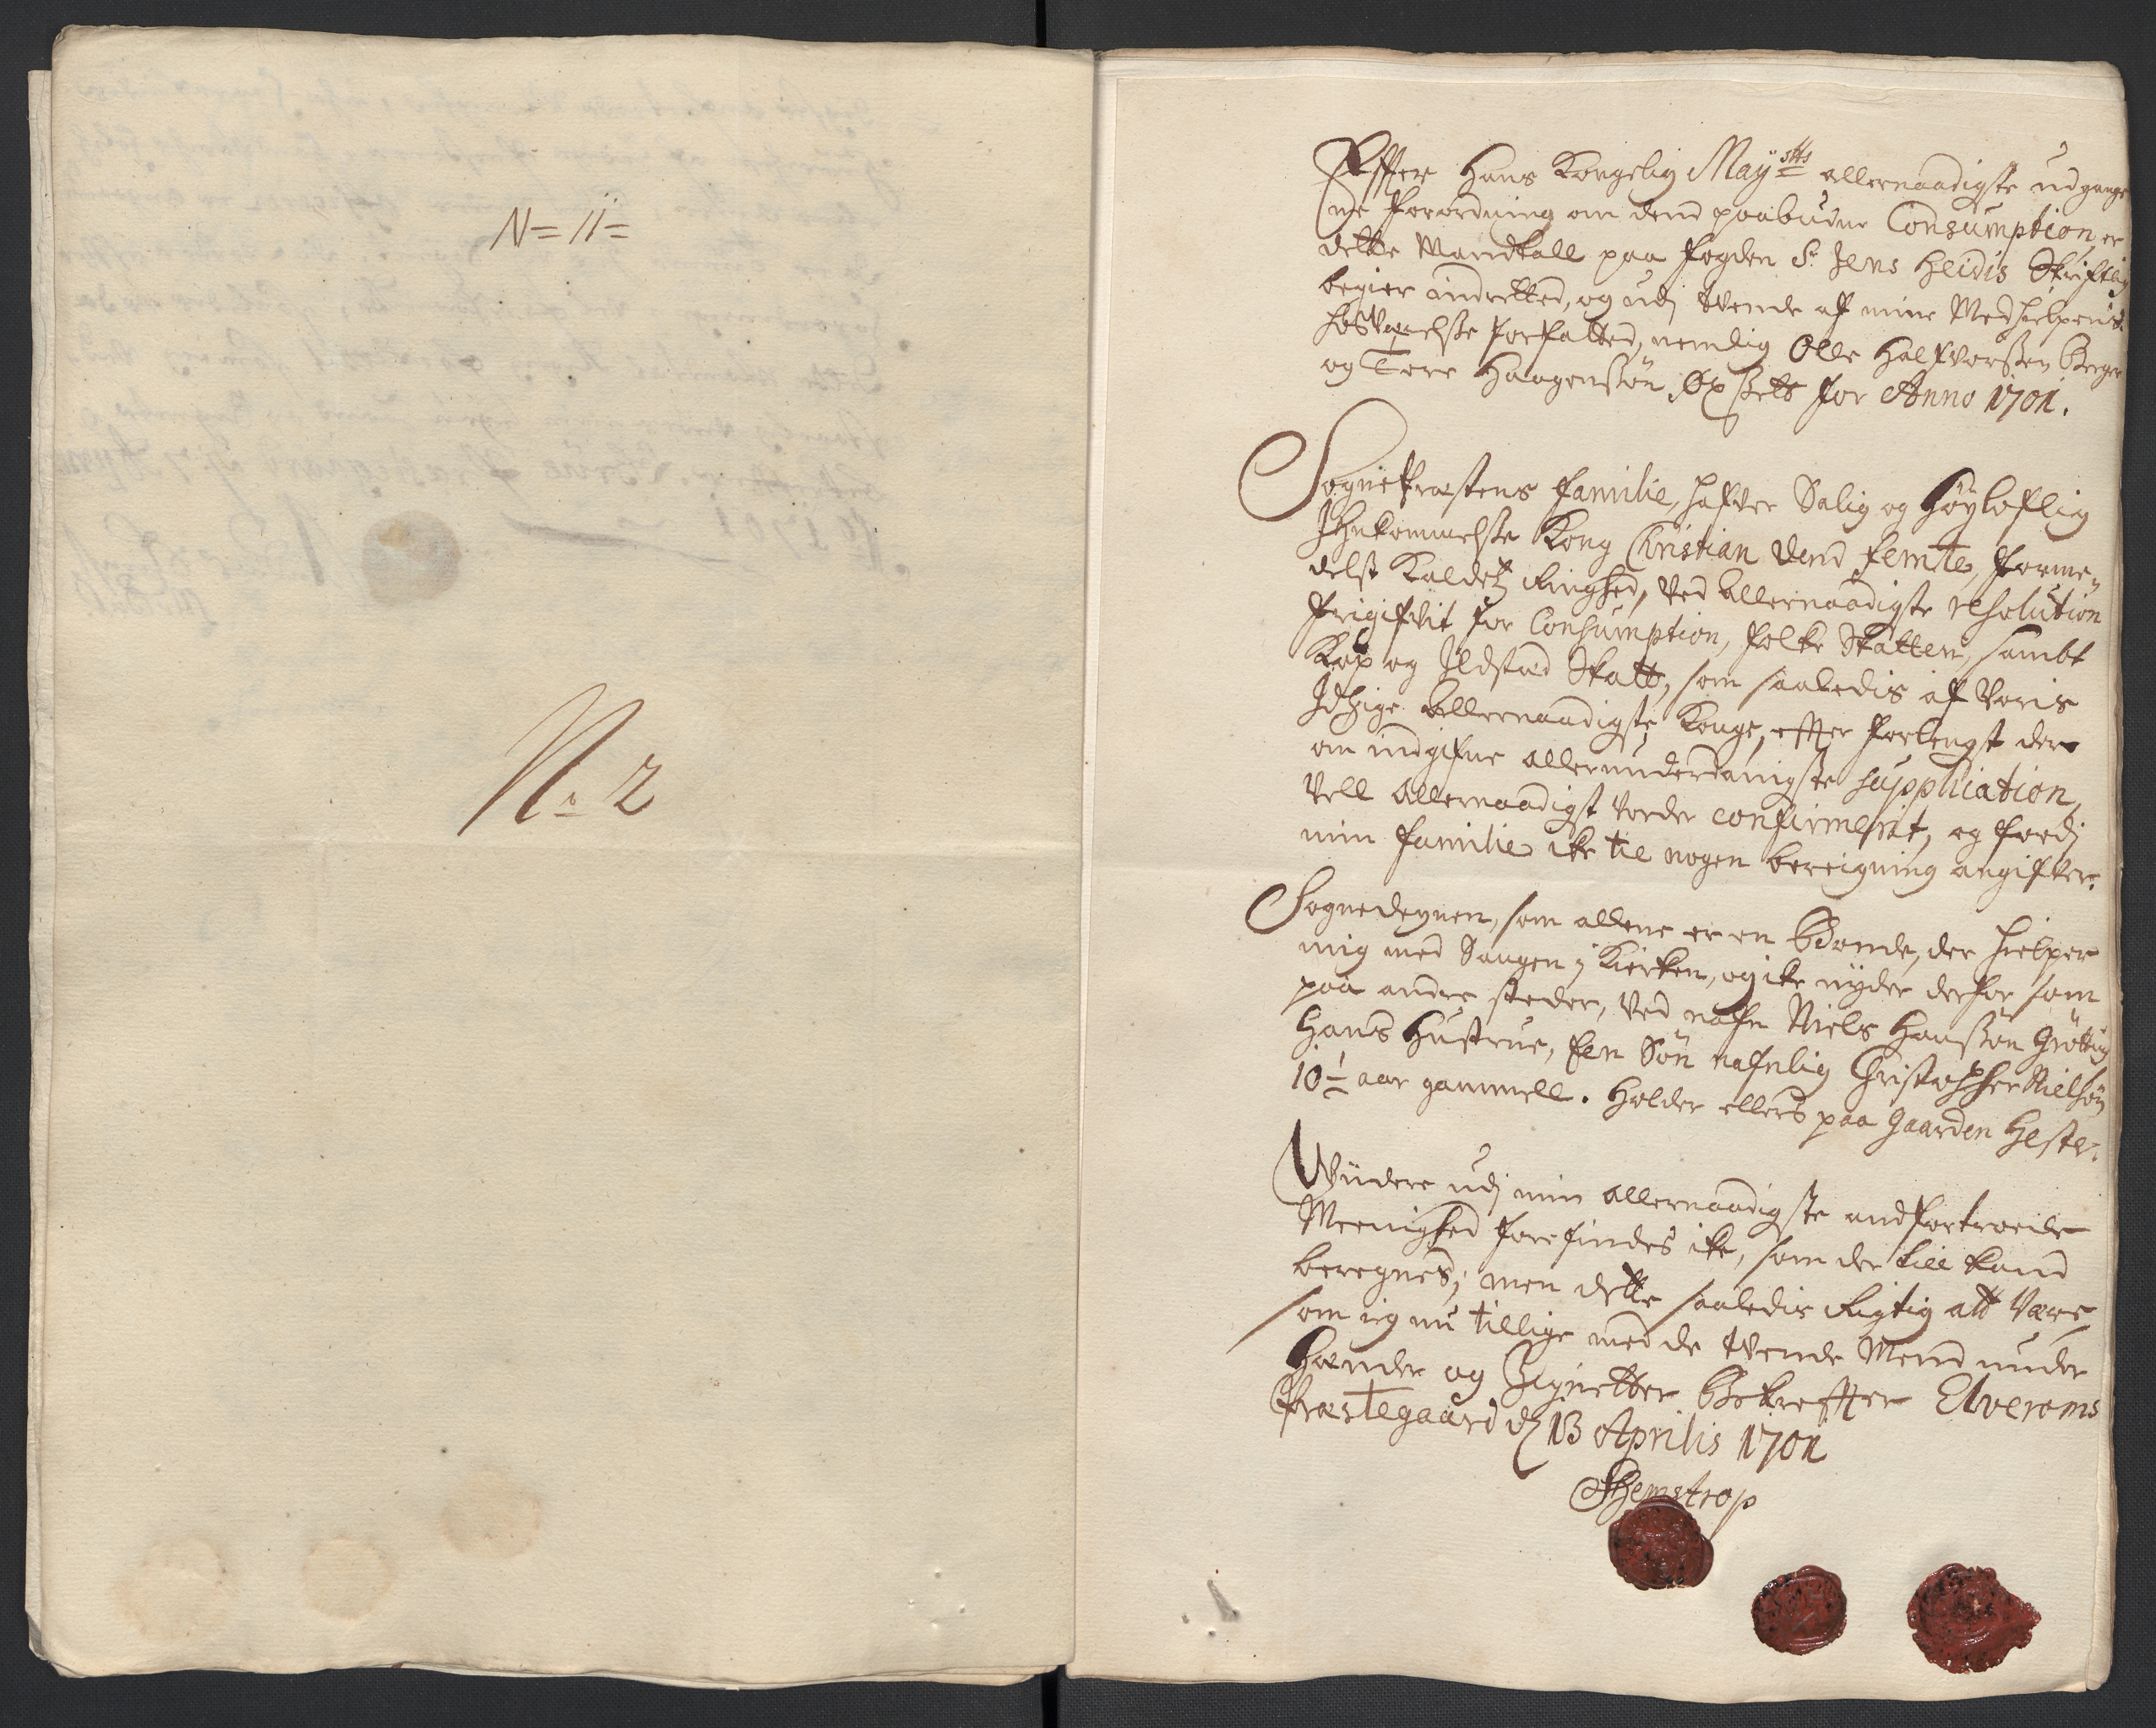 N= 11=
N: 2
Effter Hans Kongelig Mayᵗˢ allernaadigste udgange
ne forordning om dend paabudne Consumption, er
dette Mandtall paa fogden Sr Jens Heidis Skriftlig
begier indretted, og udj tvende af mine Medhielperis
hosværelsse forfatted, nemlig Olle Halfvorssen Berger
og Tore Haagenssøn Øxsett for Anno 1701.
Sognepræstens familie, hafver Salig og Høyloflig
Ihukommelsse Kong Christian dend femte, forme-
delst Kaldetz Ringhed, ved allernaadigste resolution
frigifvit for Consumption, folke Skatten, sambt
Kop og Ildsted Skatt, som saaledis af voris
Itzige allernaadigste Konge, effter forlengst der
om indgifne allerunderdanigste supplication,
vell allernaadigst vorder confirmerit, og fordj
min familie icke til nogen bereigning angifver.
Sognedegnen, som allene er en Bonde, der hielper
mig med Sangen j Kierken, og icke nyder derfor som
paa andre steder, ved nafn Niels Hanssøn Grøtting
Hans Hustrue, Een Søn nafnlig Christopher Nielsøn
10½ aar gammell. Holder ellers paa Gaarden Heste.
Viidere udj min allernaadigste andfortroede
Meenighed forefindes icke, som der till kand
beregnes; men dette saaledis Rigtig att være,
som ieg nu tillige med de tvende Mend under
Hænder og Zignetter Bekreffter Elveroms
Præstegaard dz 13 Aprilis 1701
Themstrop